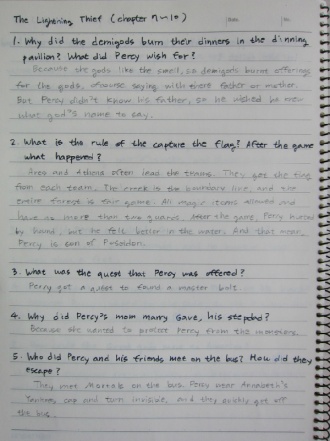 The Lightening Thief (chapter 7~10)
1. Why did the demigods burn their dinners in the dinning
pavilion? What did Percy wish for?
Because the gods like the smell, so demigods burnt offerings
for the gods, ofcourse saying with there father or mother.
But Percy didn't know his father, so he wished he knew
what god's name to say.
2. What is the rule of the capture the flag? After the game
what happened?
Ares and Athena often lead the teams. They got the flag
from each team. The creek is the boundary line, and the
entire forest is fair game. All magic items allowed and
have no more than two guards. After the game, Percy hunted
by hound, but he felt better in the water. And that mean,
Percy is son of Poseidon.
3. What was the quest that Percy was offered?
Percy got a quest to found a master bolt.
4. Why did Percy's mom marry Gave, his stepdad?
Because she wanted to protect Percy from the monsters.
5. Who did Percy and his friends met on the bus? How did they
escape?
They met Mortals on the bus. Percy wear Annabeth's
Yankees cap and turn invisible, and they quickly got off
the bus.